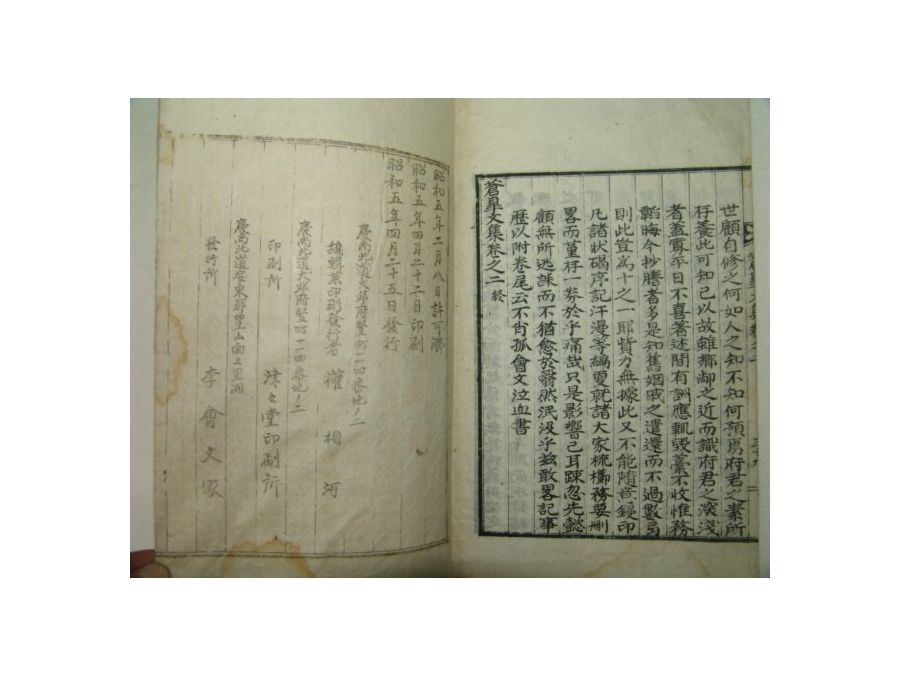 世顧自修之何如人之知不知何預焉府君之素所
存養此可知已以故雖鄕鄰之近而識府君之深淺
者蓋寡平日不喜著述間有訓應輒毁藁不收惟務
韜晦今抄謄者多是知舊姻戚之遺還而不過數弓
則此豈爲十之一耶貲力無據此又不能隨意鋟印
凡諸狀碣序記汗漫等編更就諸大家梳櫛務要刪
畧而菫存一 於乎痛哉只是影響已耳疎忽先懿
顧無所逃誅而不猶愈於 然泯沒乎玆敢畧記事
歷以附卷尾云不肖孤會文泣血書
蒼皐文集卷之二 終
昭和五年二月八日許可濟
昭和五年四月二十二日印刷
昭和五年四月二十五日發行
慶尙北道大邱府竪町一一四番地ノ二
編輯兼印刷發行者 權相河
慶尙北道大邱府竪町一一四番地ノ二
印刷所 津々堂印刷所
慶尙北道 東郡 山面上里洞
發行所 李會文家